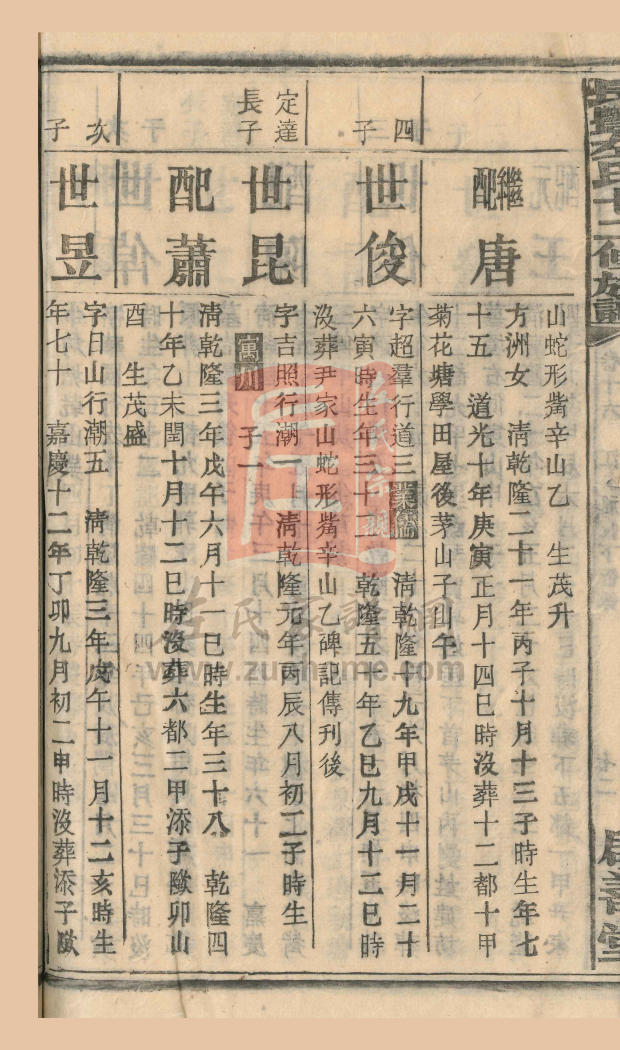 山蛇形觜辛山乙 生茂升
繼配
唐
方洲女 清乾隆二十一年丙子十月十三子時生年七
十五 道光十年庚寅正月十四巳時沒葬十二都十甲
菊花塘學田屋後茅山子山午
四子
世俊
字超羣行道三 業儒 清乾隆十九年甲戌十一月二十
六寅時生年三十二 乾隆五十年乙巳九月十三巳時
沒葬尹家山蛇形觜辛山乙碑記傳刊後
定達
長子
世昆
字吉照行潮一 清乾隆元年丙辰八月初二子時生
寓川 子一
配蕭
清乾隆三年戊午六月十一巳時生年三十八 乾隆四
十年乙未閏十月十二巳時沒葬六都二甲添子 卯山
酉 生茂盛
次子
世昱
字日山行潮五 清乾隆三年戊午十一月十二亥時生
年七十 嘉慶十二年丁卯九月初二申時沒葬添子